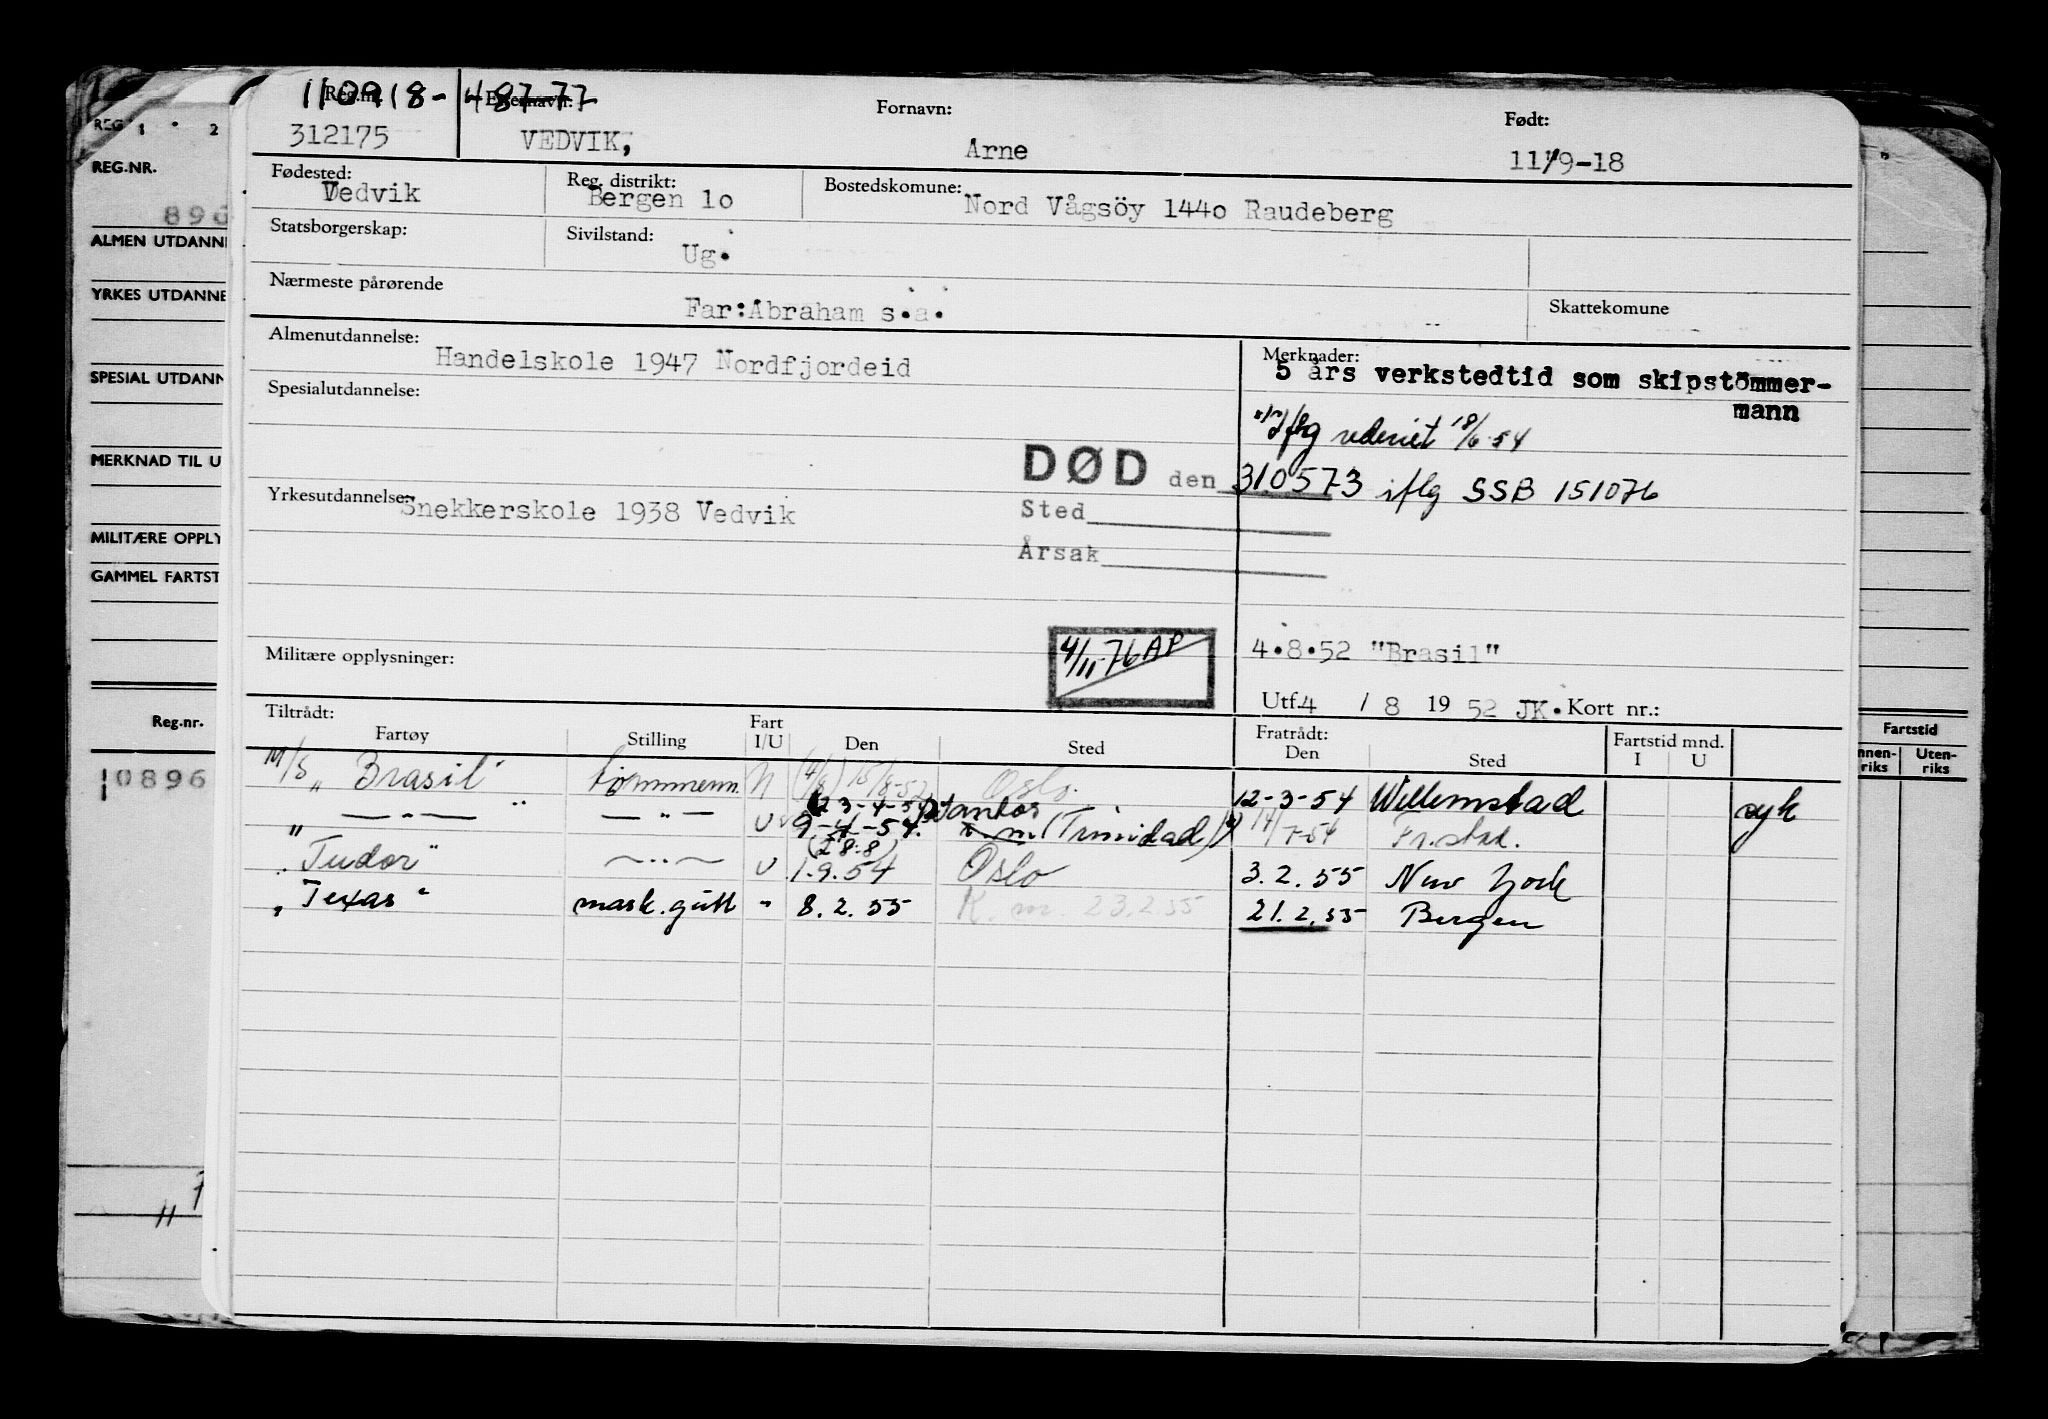 110918- 48777
Reg.nr. Etternavn: Fornavn: Født:
312175 VEDVIK, Arne 11/9-18
Fødested: Reg. distrikt: Bostedskomune:
Vedvik Bergen 1o Nord Vågsöy 144o Raudeberg
Statsborgerskap: Sivilstand:
Ug.
Nærmeste pårørende Skattekomune
Far: Abraham s.a.
Almenutdannelse: Merknader:
Handelskole 1947 Nordfjordeid 5 års verkstedtid som skipstömmer-
mann
Spesialutdannelse:
iflg rederiet 18/6-54
DØD den 310573 iflg SSB 151076
Yrkesutdannelse: Snekkerskole 1938 Vedvik
Sted
Årsak
Militære opplysninger: 4/11-76 AP 4.8.52 "Brasil"
Utf. 4 / 8 19 52 JK. Kort nr.:
Tiltrådt: Fart Fratrådt: Fartstid mnd.
Fartøy Stilling I/U Den Sted Den Sted I U
M/S "Brasil" tømmerm. N (4/8) 15/8-52 Oslo. 12-3-54 Willemstad syk
" — " — — " — U (23-4-54) Santos
9-4-54. (Trinidad) 14/7-54 Fr.stad.
(28.8)
"Tudor" — " — U 1.9.54 Oslo 3.2.55 New York
"Texas" mask.gutt " 8.2.55 K.m. 23.2.55 21.2.55 Bergen
REG 1 2
REG.NR.
896
ALMEN UTDANN
YRKES UTDANNE
SPESIAL UTDANN
MERKNAD TIL U
MILITÆRE OPPLY
GAMMEL FARTST
Reg.nr.
10896
Fartstid
nnen-riks Uten-riks